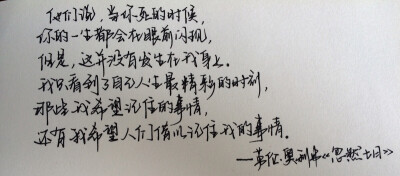 他们说，当你死的时候，
你的一生都会在眼前闪现，
但是，这并没有发生在我身上。
我只看到了自己人生最精彩的时刻，
那些我希望记住的事情，
还有我希望人们借以记住我的事情。
—劳伦·奥利弗《忽然七日》